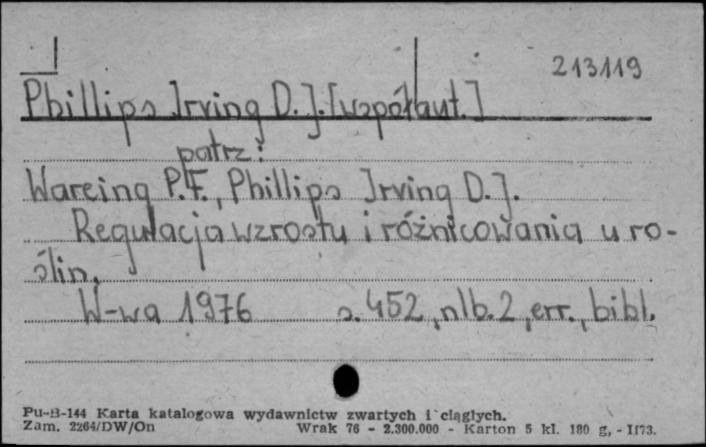 213119
Phillips Irving D.J. [współaut.]
patrz:
Wareing P.F., Phillips Irving D.J.
Regulacja wzrostu i różnicowania u ro-
ślin.
W-wa 1976 s. 452, nlb. 2, err., bibl.
Pu-B-144 Karta katalogowa wydawnictw zwartych i ciągłych.
Zam. 2264/DW/On Wrak 76 - 2.300.000 - Karton 5 kl. 180 g, - II73.